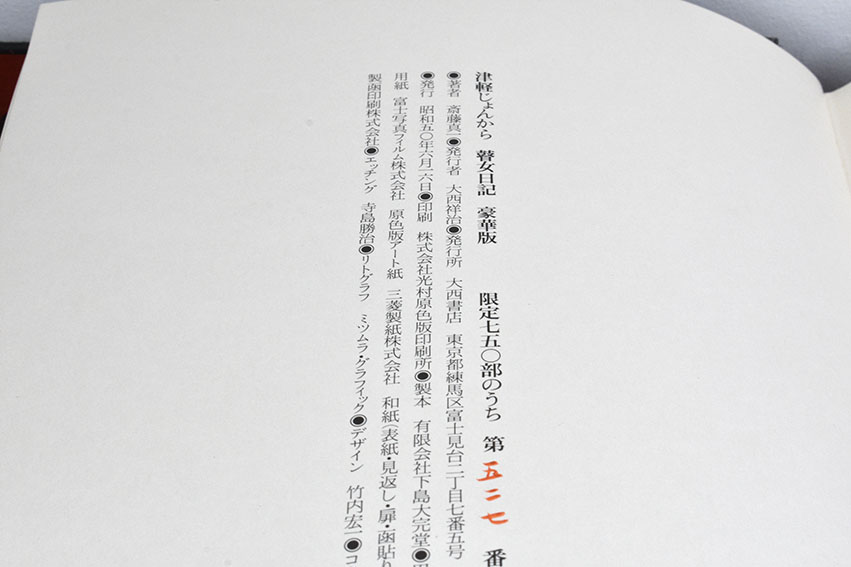 津軽じょんから 瞽女日記 豪華版 限定七五〇部のうち 第五二七番
●著者 斎藤真一●発行者 大西祥治●発行所 大西書店 東京都練馬区富士見台二丁目七番五号
●発行 昭和五〇年六月二六日●印刷 株式会社光村原色版印刷所●製本 有限会社下島大完堂●
用紙 富士写真フィルム株式会社 原色版アート紙 三菱製紙株式会社 和紙(表紙・見返し・扉・函貼り
製函印刷株式会社●エッチング 寺島勝治●リトグラフ ミツムラ・グラフィック●デザイン 竹内宏一●コ